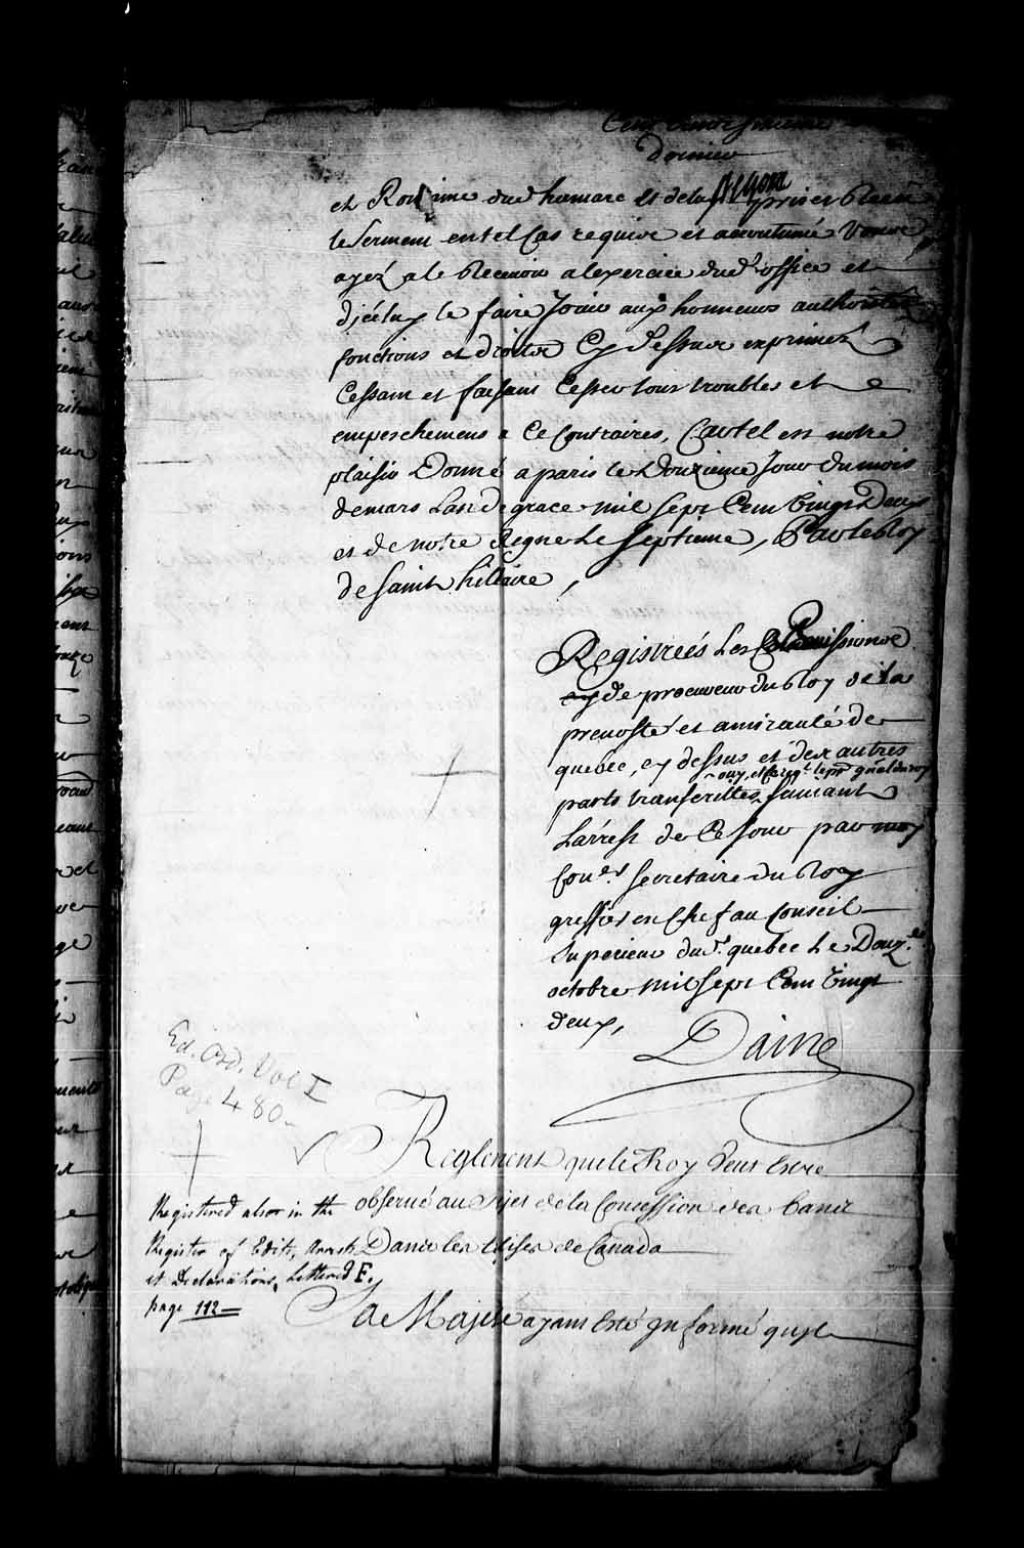 Cent trente Sixieme
dernier
et Rox ime dud humare et de luy pris et Receu
le Serment en tel Cas requise et accoutumé Vous
ayez a le Recevoir a lexercice dud.t office et
d'jceluy le faire Jouir aux honneurs authorités
fonctions et droits Cy dessus exprimez
Cessant et faisant Cesser tous troubles et
empeschemens a Ce Contraires, Car tel est notre
plaisir Donné a paris le Douzieme Jour du mois
de mars Lan de grace mil Sept Cent Vingt Deux
et de notre Regne Le Septieme, Par le Roy
de Saint hillaire,
Registreés Les Commissions
de procureur du Roy de la
prevosté et amirauté de
quebec, cy dessus et des autres
ouy, et ce req.t le pr. gñal du roy
parts transcrittes, suivant
Larrest de Ce Jour par moy
Con.er Secretaire du Roy
greffier en Chef au Conseil
Superieur du.t quebec Le Douz.e
octobre mil Sept Cent Vingt
deux,
Daine
Ed. Ord. Vol I
Page 480
Reglement que le Roy Veut Estre
observé au Sujet de la Concession des bancs
Dans les Eglises de Canada
Registered also in the
Register of Edits, Arrets
et Declarations, Lettered F.
page 112
Sa Majesté ayant Esté Informé qu'jl